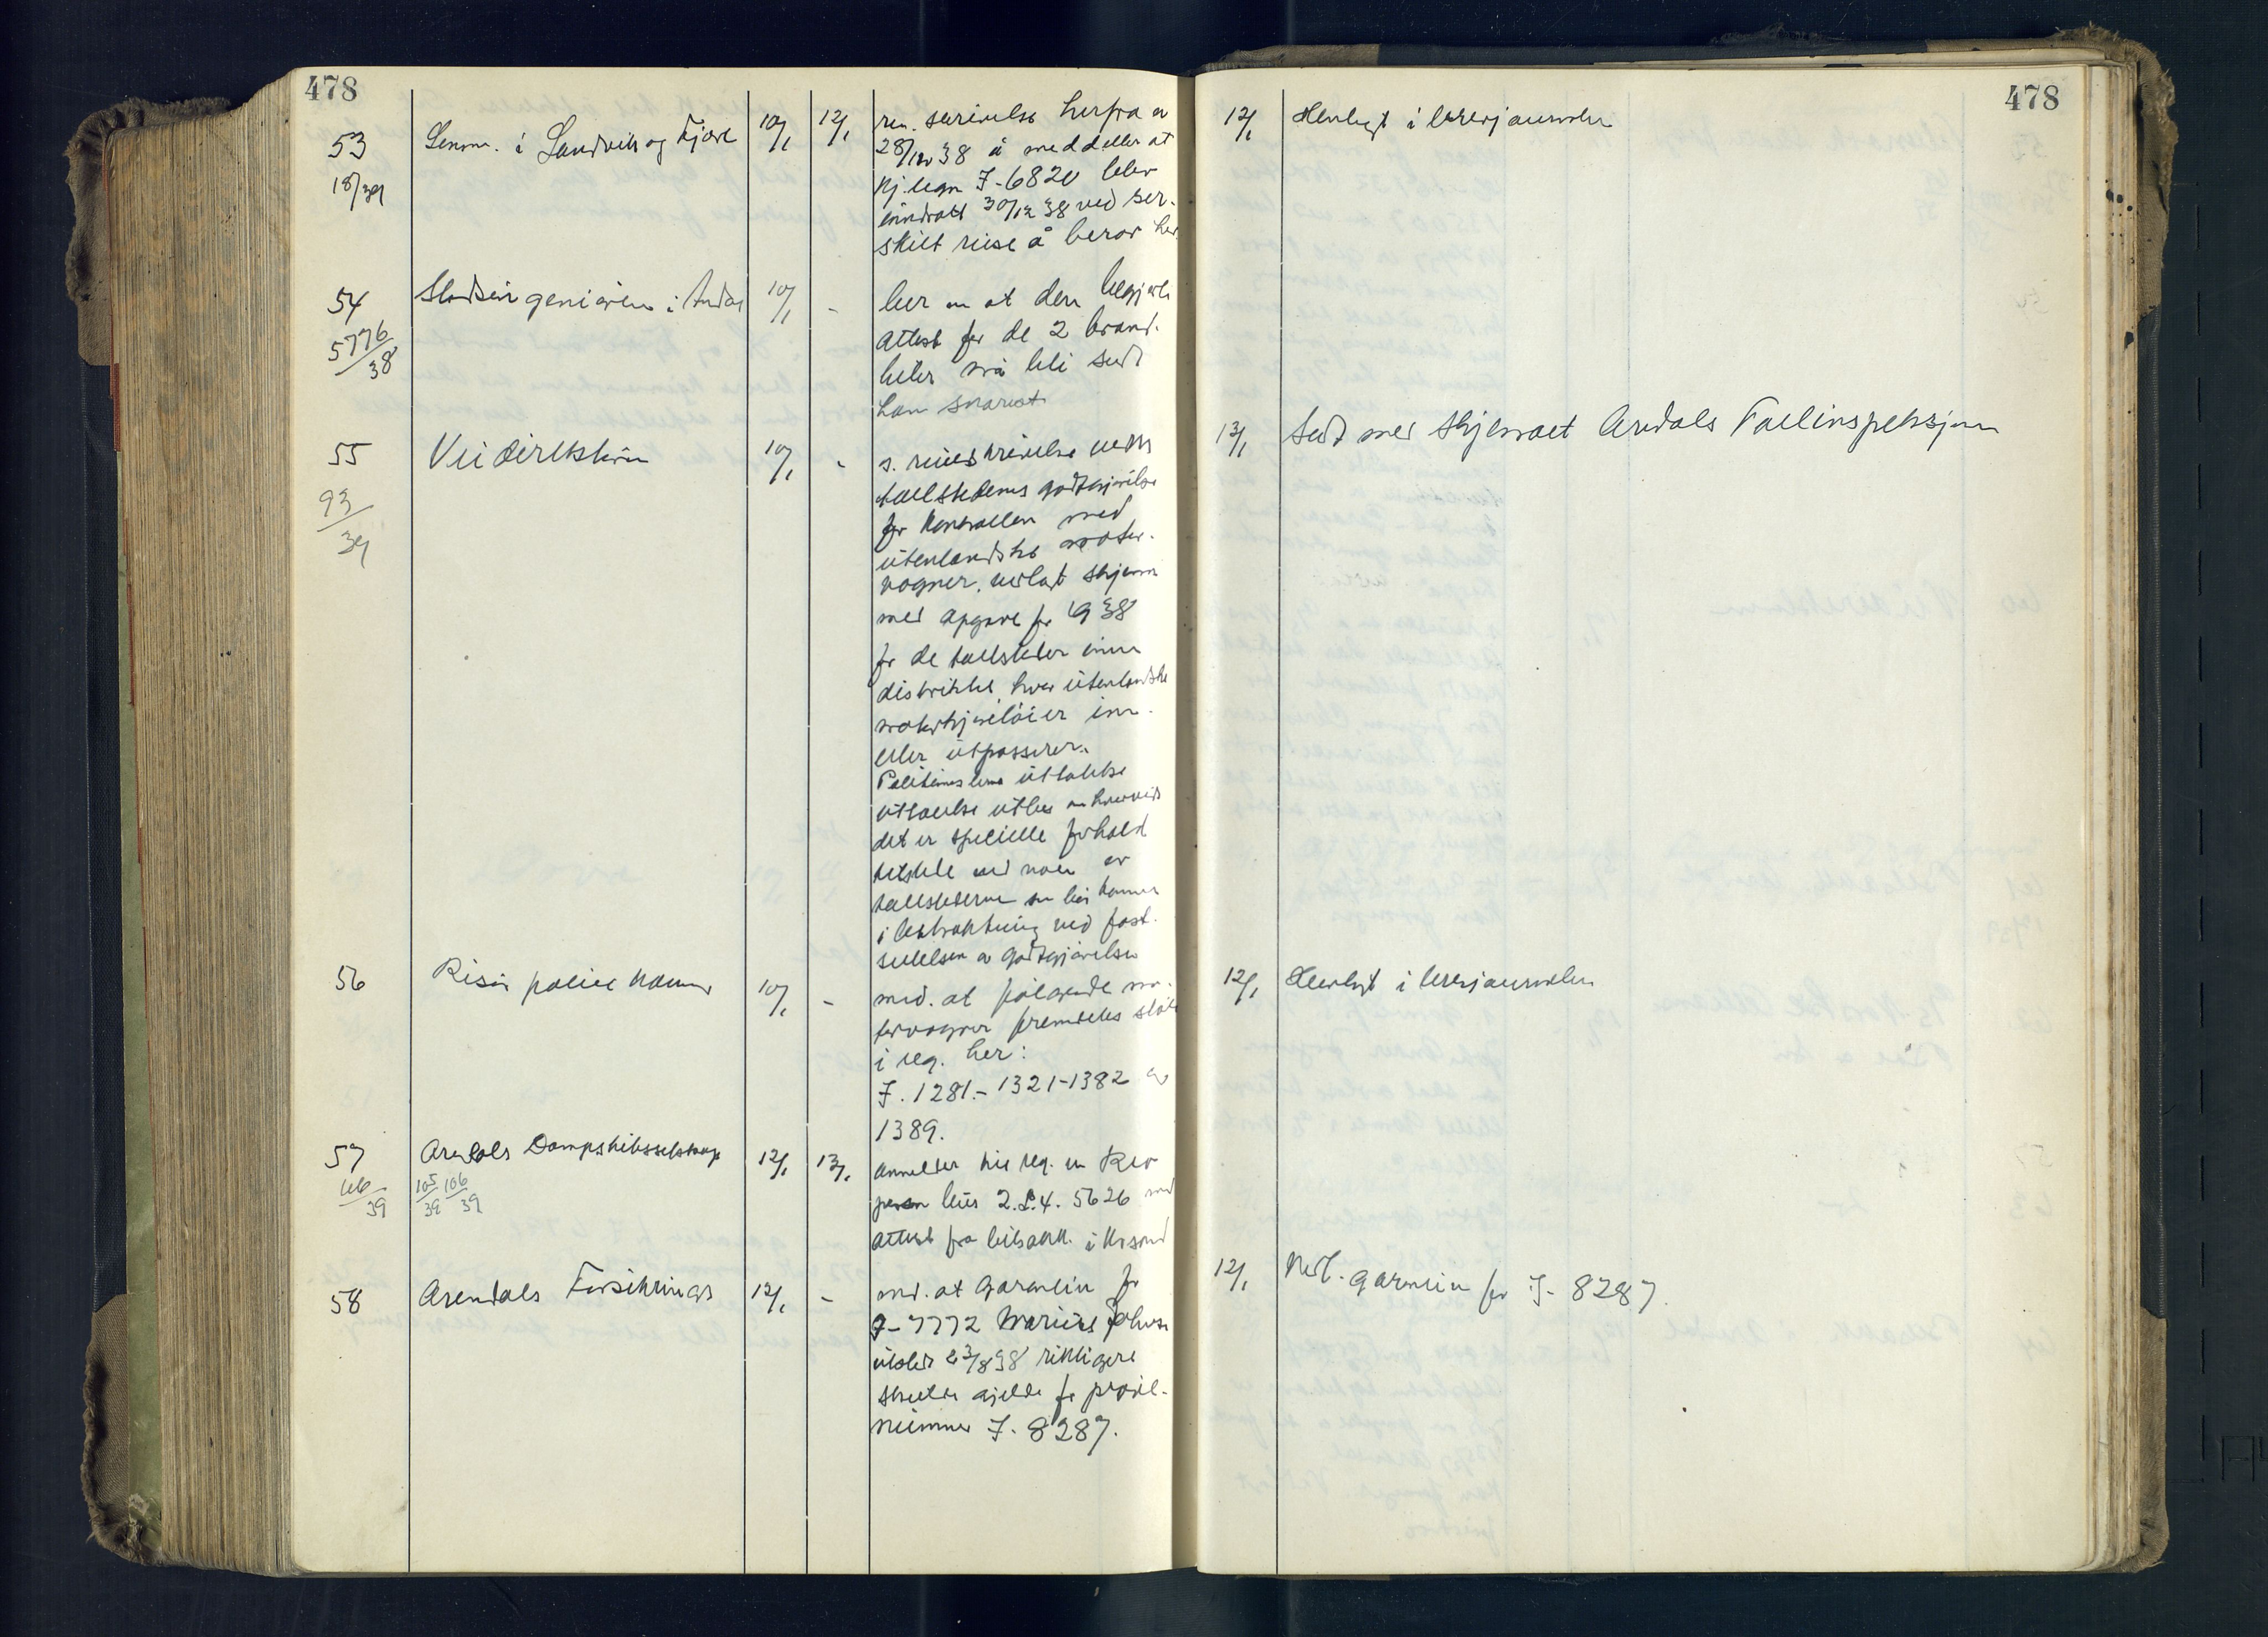 478
53
18/39
Lensm. i Landvik og Fjære
10/1
12/1
ren. skrivelse herfra av
28/12 38 å meddeller at
kj.legn I-6820 blev
inndratt 30/12 38 ved sær-
skilt reise å beror her.
54
5776/38
Stadsingeniøren i Arendal
10/1
-
ber om at den begjærte
attest for de 2 brand-
biler må bli sendt
ham snarest
55
93/39
Veidirektøren
10/1
-
s. rundskrivelse vedk
tollstedenes godtgjørelse
for kontrollen med
utenlandske motor-
vogner. vedlagt skjema
med opgave for 1938
for de tollsteder innen
distriktet hvor utenlandske
motorkjøretøier inn-
eller utpasserer.
Politimesterens uttalelse
uttalelse utbes om hvorvidt
det er specielle forhold
tilstede ved noen av
tollstederne som bør komme
i betraktning ved fast-
settelsen av godtgjørelsen
56
Risør politikammer
10/1
-
med. at følgende mo-
torvogner fremdeles står
i reg. her:
I. 1281.- 1321-1382 og
1389.
57
106/39
Arendals Dampskibsselskap
105/39 106/39
12/1
13/1
anmelder til reg. en Reo
buss 2.L.4. 5626 med
attest fra bilsakk. i Krsand
58
Arendals Forsikrings
12/1
-
med. at garantien for
I-7772 Marius Johnsen
utstedt 23/8 38 riktigere
skulde gjelde for prøve-
nummer I. 8287.
478
12/1 Henlagt i brevjournalen
13/1 Sendt med skjemaet Arendals Tollinspeksjon
12/1 Henlagt i brevjournalen
12/1 Vedl. garantien for I- 8287.